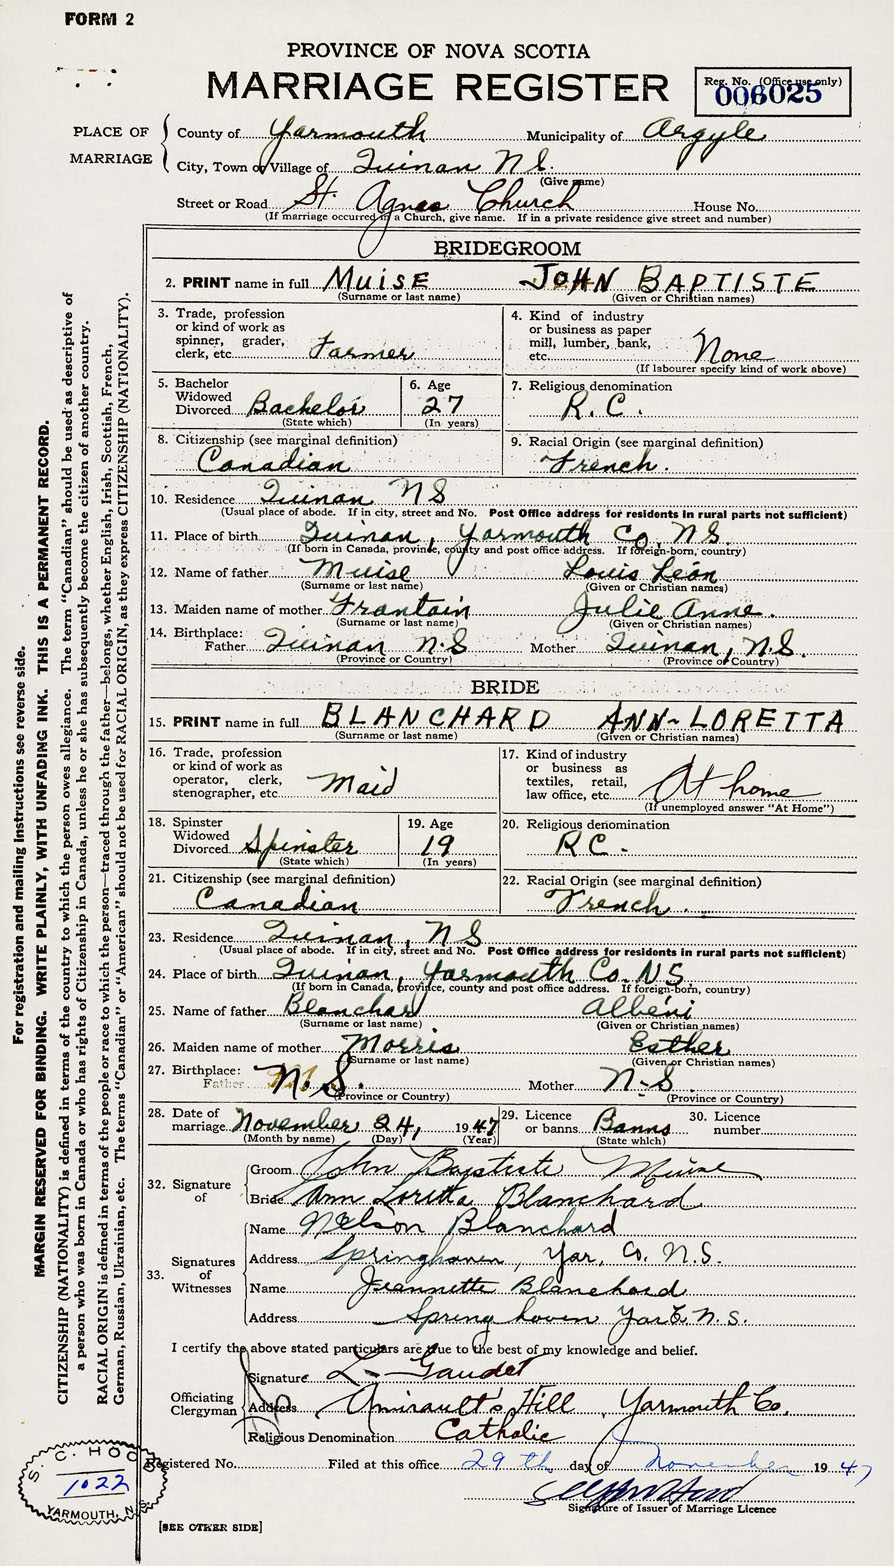 FORM 2
PROVINCE OF NOVA SCOTIA
MARRIAGE REGISTER
Reg. No. (Office use only)
006025
PLACE OF MARRIAGE
County of Yarmouth Municipality of Argyle
City, Town or Village of Quinan N S.
(Give name)
Street or Road St. Agnes Church House No.
(If marriage occurred in a Church, give name. If in a private residence give street and number)
BRIDEGROOM
2. PRINT name in full MUISE JOHN BAPTISTE
(Surname or last name) (Given or Christian names)
3. Trade, profession or kind of work as spinner, grader, clerk, etc. Farmer
4. Kind of industry or business as paper mill, lumber, bank, etc. None
(If labourer specify kind of work above)
5. Bachelor Widowed Divorced Bachelor
(State which)
6. Age 27
(In years)
7. Religious denomination R.C.
8. Citizenship (see marginal definition) Canadian
9. Racial Origin (see marginal definition) French.
10. Residence Quinan N S
(Usual place of abode. If in city, street and No. Post Office address for residents in rural parts not sufficient)
11. Place of birth Quinan, Yarmouth Co. N.S.
(If born in Canada, province, county and post office address. If foreign-born, country)
12. Name of father Muise Louis Léon
(Surname or last name) (Given or Christian names)
13. Maiden name of mother Frontain Julie Anne.
(Surname or last name) (Given or Christian names)
14. Birthplace: Father Quinan N.S Mother Quinan, N.S.
(Province or Country) (Province or Country)
BRIDE
15. PRINT name in full BLANCHARD ANN-LORETTA
(Surname or last name) (Given or Christian names)
16. Trade, profession or kind of work as operator, clerk, stenographer, etc. Maid
17. Kind of industry or business as textiles, retail, law office, etc. At home
(If unemployed answer "At Home")
18. Spinster Widowed Divorced Spinster
(State which)
19. Age 19
(In years)
20. Religious denomination R C.
21. Citizenship (see marginal definition) Canadian
22. Racial Origin (see marginal definition) French.
23. Residence Quinan, N S
(Usual place of abode. If in city, street and No. Post Office address for residents in rural parts not sufficient)
24. Place of birth Quinan, Yarmouth Co. N S.
(If born in Canada, province, county and post office address. If foreign-born, country)
25. Name of father Blanchard Albéni
(Surname or last name) (Given or Christian names)
26. Maiden name of mother Morris Esther
(Surname or last name) (Given or Christian names)
27. Birthplace: Father N.S. Mother N-S
(Province or Country) (Province or Country)
28. Date of marriage November 24, 1947
(Month by name) (Day) (Year)
29. Licence or banns Banns
(State which)
30. Licence number
32. Signature of
Groom John Baptiste Muise
Bride Ann Loretta Blanchard
33. Signatures of Witnesses
Name Nelson Blanchard
Address Springhaven, Yar, Co. N.S.
Name Jeannette Blanchard
Address Spring haven Yar C. N. S.
I certify the above stated particulars are true to the best of my knowledge and belief.
Officiating Clergyman
Signature L. Gaudet
Address Amirault's Hill, Yarmouth Co.
Religious Denomination Catholic
Registered No. Filed at this office 29 th day of November 1947
Signature of Issuer of Marriage Licence
[SEE OTHER SIDE]
S. C. HOOD
1022
YARMOUTH, N.S.
For registration and mailing instructions see reverse side.
MARGIN RESERVED FOR BINDING. WRITE PLAINLY, WITH UNFADING INK. THIS IS A PERMANENT RECORD.
CITIZENSHIP (NATIONALITY) is defined in terms of the country to which the person owes allegiance. The term "Canadian" should be used as descriptive of
a person who was born in Canada or who has rights of Citizenship in Canada, unless he or she has subsequently become the citizen of another country.
RACIAL ORIGIN is defined in terms of the people or race to which the person—traced through the father—belongs, whether English, Irish, Scottish, French,
German, Russian, Ukrainian, etc. The terms "Canadian" or "American" should not be used for RACIAL ORIGIN, as they express CITIZENSHIP (NATIONALITY).